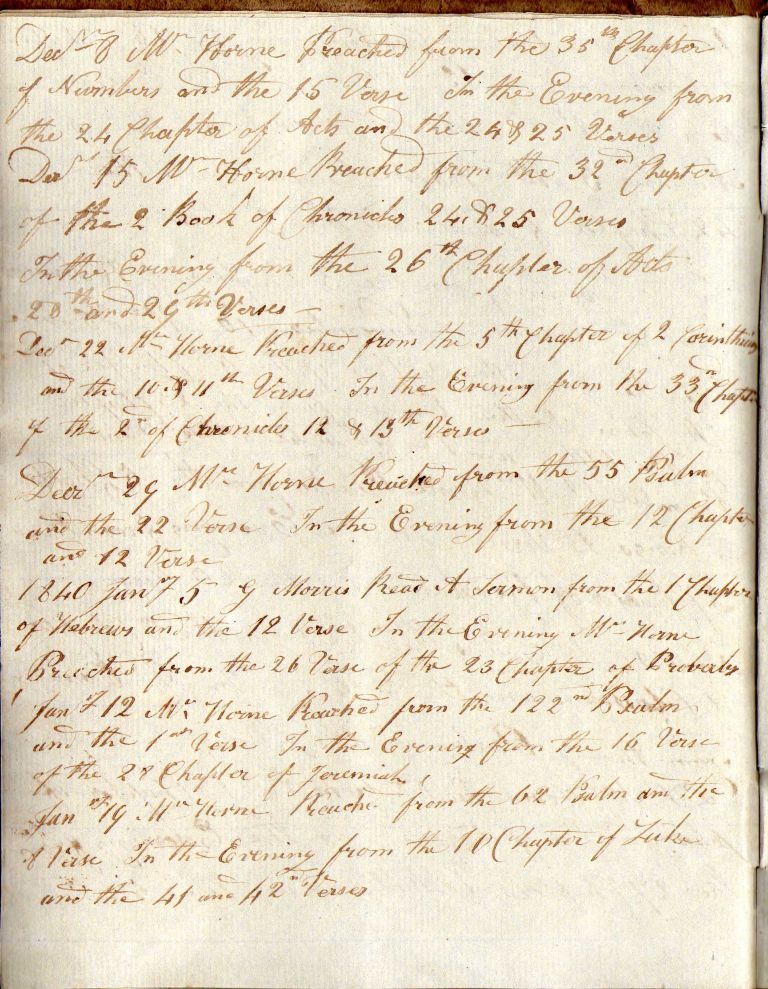 Decr 8 Mr Horne Preached from the 35th Chapter
of Numbers and the 15 Verse In the Evening from
the 24 Chapter of Acts and the 24 & 25 Verses
Decr 15 Mr Horne Preached from the 32nd Chapter
of the 2 Book of Chronicles 24 & 25 Verses
In the Evening from the 26th Chapter of Acts
28th and 29th Verses —
Decr 22 Mr Horne Preached from the 5th Chapter of 2 Corinthians
and the 10 & 11th Verses In the Evening from the 33rd Chapt
of the 2nd of Chronicles 12 & 13th Verses —
Decr 29 Mr Horne Preached from the 55 Psalm
and the 22 Verse In the Evening from the 12 Chapter
and 12 Verse
1840 Jany 5 G Morris Read A Sermon from the 1 Chapter
of Hebrews and the 12 Verse In the Evening Mr Horne
Preached from the 26 Verse of the 23 Chapter of Proverbs
Jany 12 Mr Horne Preached from the 122nd Psalm
and the 1st Verse In the Evening from the 16 Verse
of the 28 Chapter of Jeremiah
Jany 19 Mr Horne Preache from the 62 Psalm and the
8 Verse In the Evening from the 10 Chapter of Luke
and the 41 and 42nd Verses